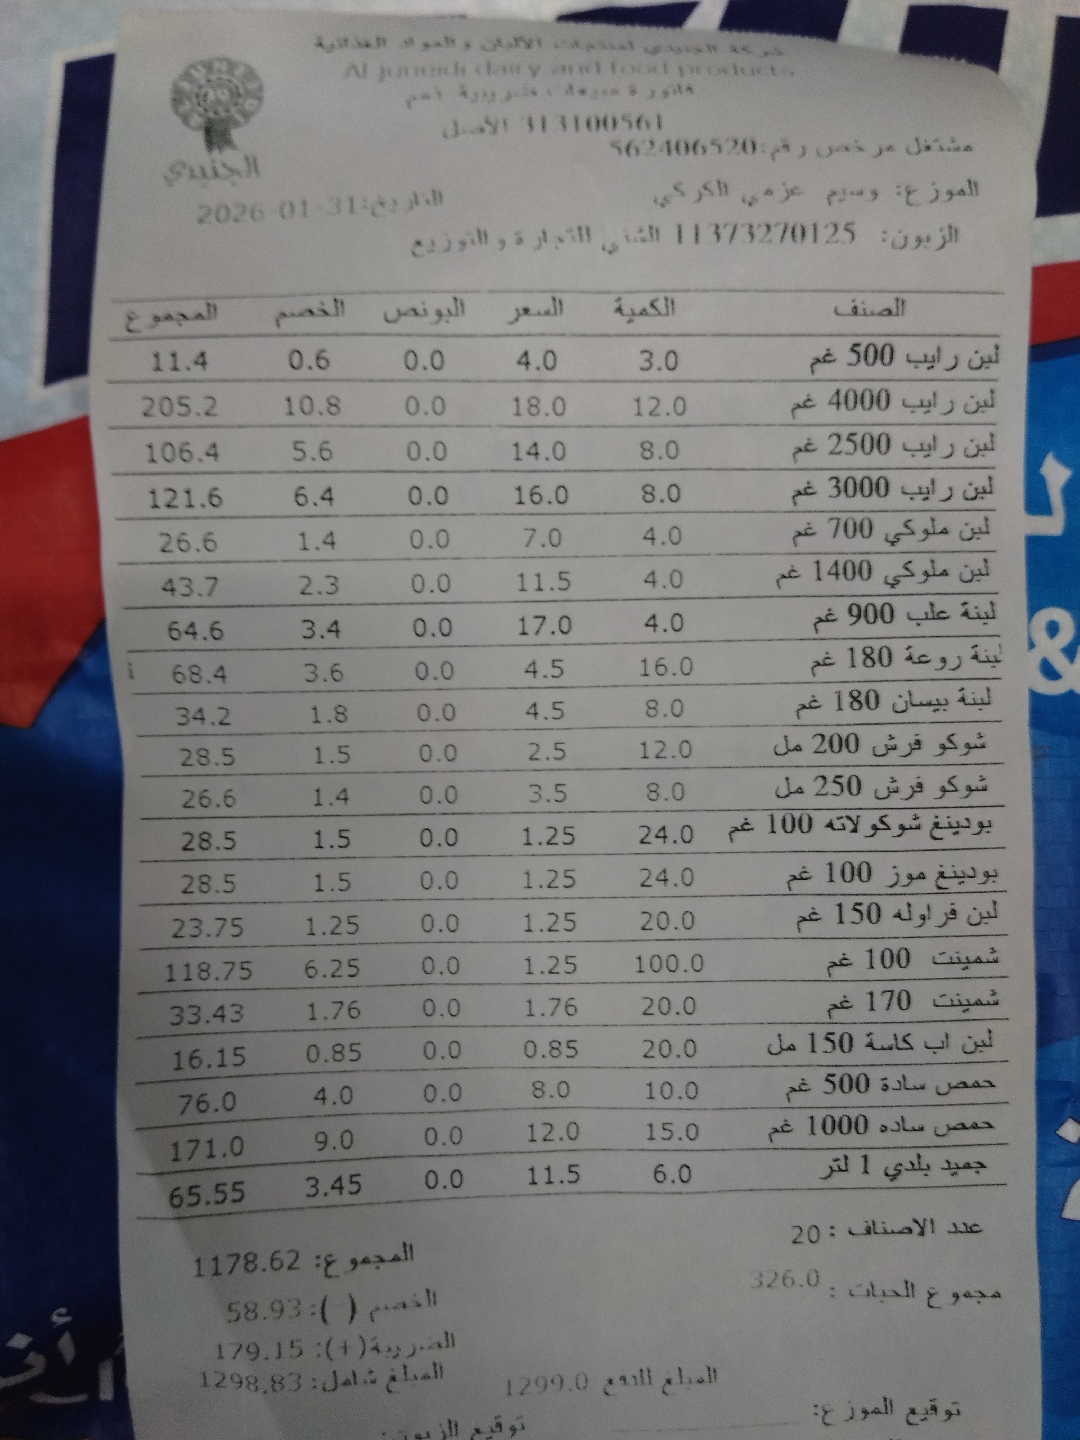 شركة الجنيدي لمنتجات الألبان والمواد الغذائية
Al juneidi dairy and food products
الجنيدي
فاتورة مبيعات ضريبية
313100561 الأصل
مشتغل مرخص رقم:562406520
الموزع: وسيم عزمي الكركي
التاريخ:31-01-2026
الزبون: 11373270125 الشني للتجارة والتوزيع
الصنف الكمية السعر البونص الخصم المجموع
لبن رايب 500 غم 3.0 4.0 0.0 0.6 11.4
لبن رايب 4000 غم 12.0 18.0 0.0 10.8 205.2
لبن رايب 2500 غم 8.0 14.0 0.0 5.6 106.4
لبن رايب 3000 غم 8.0 16.0 0.0 6.4 121.6
لبن ملوكي 700 غم 4.0 7.0 0.0 1.4 26.6
لبن ملوكي 1400 غم 4.0 11.5 0.0 2.3 43.7
لبنة علب 900 غم 4.0 17.0 0.0 3.4 64.6
لبنة روعة 180 غم 16.0 4.5 0.0 3.6 68.4
لبنة بيسان 180 غم 8.0 4.5 0.0 1.8 34.2
شوكو فرش 200 مل 12.0 2.5 0.0 1.5 28.5
شوكو فرش 250 مل 8.0 3.5 0.0 1.4 26.6
بودينغ شوكولاته 100 غم 24.0 1.25 0.0 1.5 28.5
بودينغ موز 100 غم 24.0 1.25 0.0 1.5 28.5
لبن فراوله 150 غم 20.0 1.25 0.0 1.25 23.75
شمينت 100 غم 100.0 1.25 0.0 6.25 118.75
شمينت 170 غم 20.0 1.76 0.0 1.76 33.43
لبن اب كاسة 150 مل 20.0 0.85 0.0 0.85 16.15
حمص سادة 500 غم 10.0 8.0 0.0 4.0 76.0
حمص ساده 1000 غم 15.0 12.0 0.0 9.0 171.0
جميد بلدي 1 لتر 6.0 11.5 0.0 3.45 65.55
عدد الاصناف : 20
المجموع: 1178.62
مجموع الحبات : 326.0
الخصم (-): 58.93
الضريبة(+): 179.15
المبلغ شامل: 1298.83
المبلغ للدفع 1299.0
توقيع الموزع:
توقيع الزبون:
&